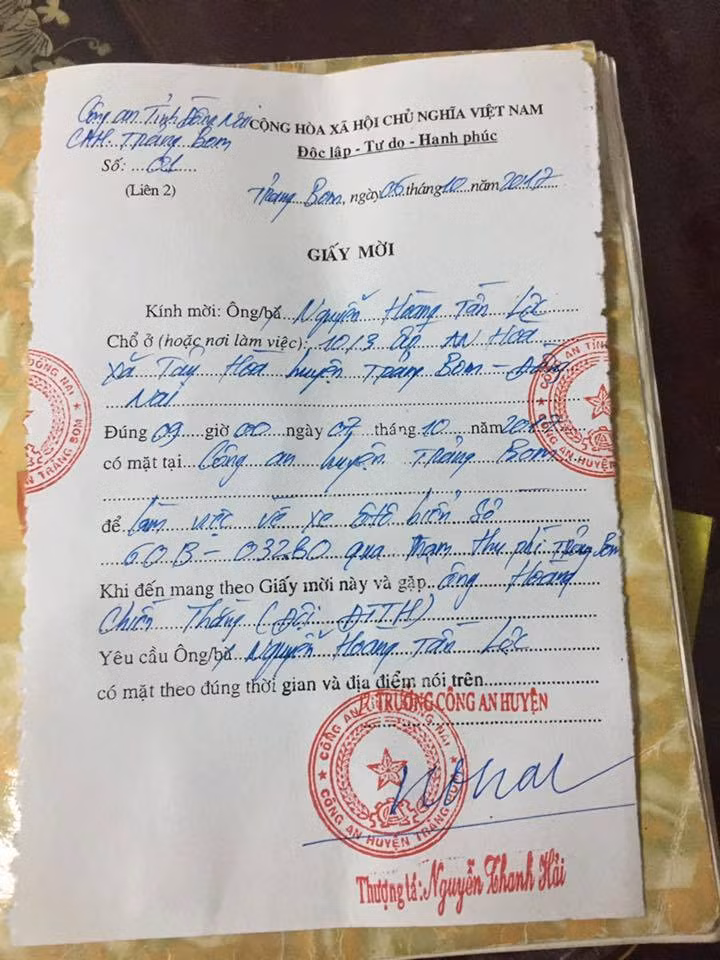 Công an Tỉnh Đồng Nai
CỘNG HÒA XÃ HỘI CHỦ NGHĨA VIỆT NAM
CAH. Trảng Bom
Độc lập - Tư do - Hanh phúc
Số: ...01......
(Liên 2)
Trảng Bom, ngày 06 tháng 10 năm 2017
GIẤY MỜI
Kính mời: Ông/bà Nguyễn Hoàng Tấn Lộc
Chổ ở (hoặc nơi làm việc): 10/3 ấp An Hoà
xã Tây Hoà huyện Trảng Bom - Đồng
Nai
Đúng 09 giờ 00 ngày 07 tháng 10 năm 2017
có mặt tại Công an huyện Trảng Bom
để làm việc về xe ôtô biển số
60B - 03280 qua trạm thu phí Trảng Bom
Khi đến mang theo Giấy mời này và gặp ông Hoàng
Chiến Thắng (Đội ĐTTH)
Yêu cầu Ông/bà Nguyễn Hoàng Tấn Lộc
có mặt theo đúng thời gian và địa điểm nói trên
TRƯỞNG CÔNG AN HUYỆN
CÔNG AN HUYỆN TRẢNG BOM
Thượng tá: Nguyễn Thanh Hải
ĐỒNG NAI
AN TRẢNG BOM
CÔNG AN TỈNH
CÔNG AN HUYỆN